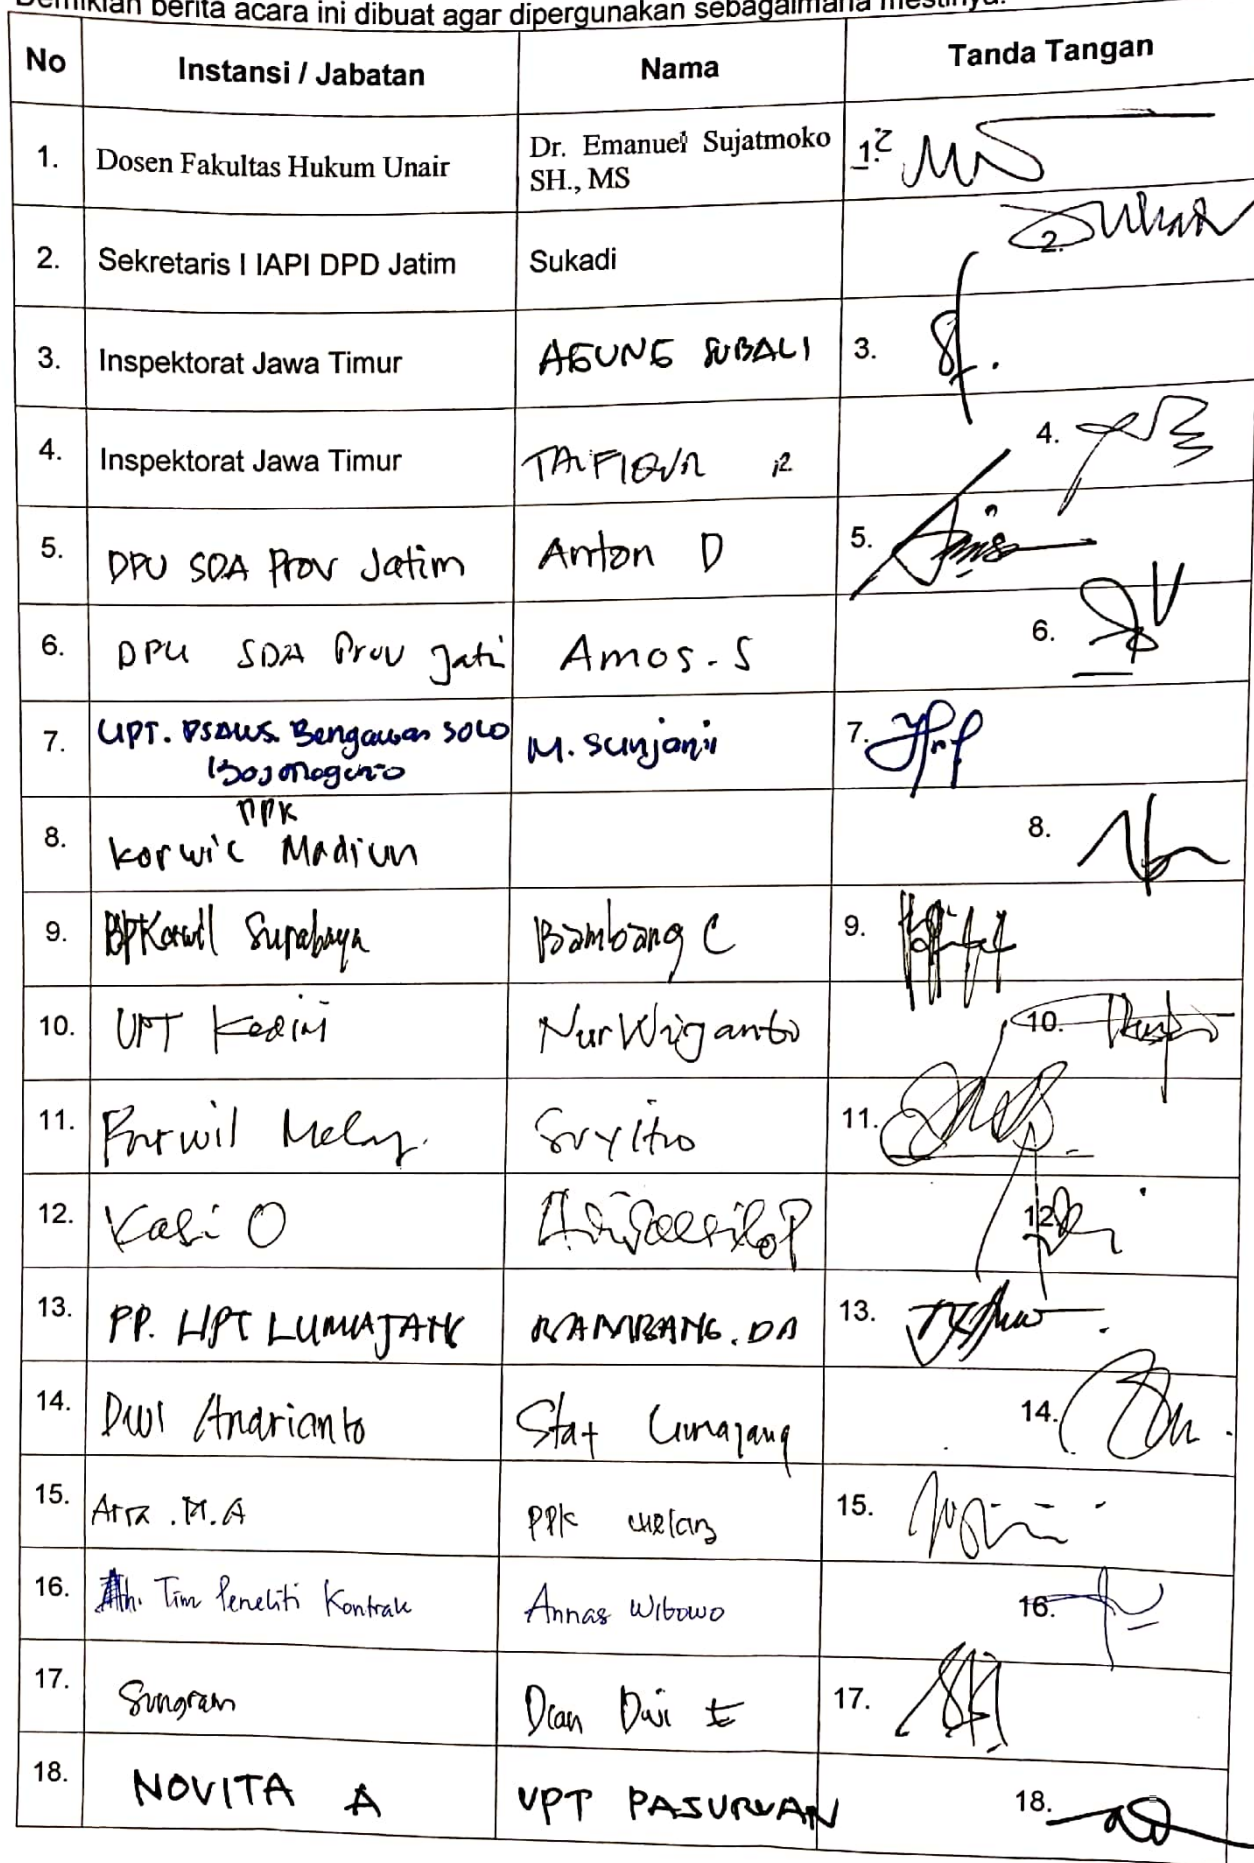 Demikian berita acara ini dibuat agar dipergunakan sebagaimana mestinya.
No Instansi / Jabatan Nama Tanda Tangan
1. Dosen Fakultas Hukum Unair Dr. Emanuel Sujatmoko SH., MS 1.
2. Sekretaris I IAPI DPD Jatim Sukadi 2.
3. Inspektorat Jawa Timur AGUNG SUBALI 3.
4. Inspektorat Jawa Timur 4.
5. DPU SDA Prov Jatim Anton D 5.
6. DPU SDA Prov Jati Amos. S 6.
7. UPT. PSDAWS. Bengawan SOLO M. Sunjani 7.
Bojonegoro
PPK
8. Korwil Madiun 8.
9. Surabaya Bambang C 9.
10. UPT Kediri Nur Wiganto 10.
11. Suyitno 11.
12. Kasi O 12.
13. PP. UPT LUMAJANG BAMBANG. DA 13.
14. Dwi Andrianto Staf Lumajang 14.
15. M.A PPK 15.
16. Tim Peneliti Kontrak Annas Wibowo 16.
17. Sungram Dian Dwi 17.
18. NOVITA A UPT PASURUAN 18.